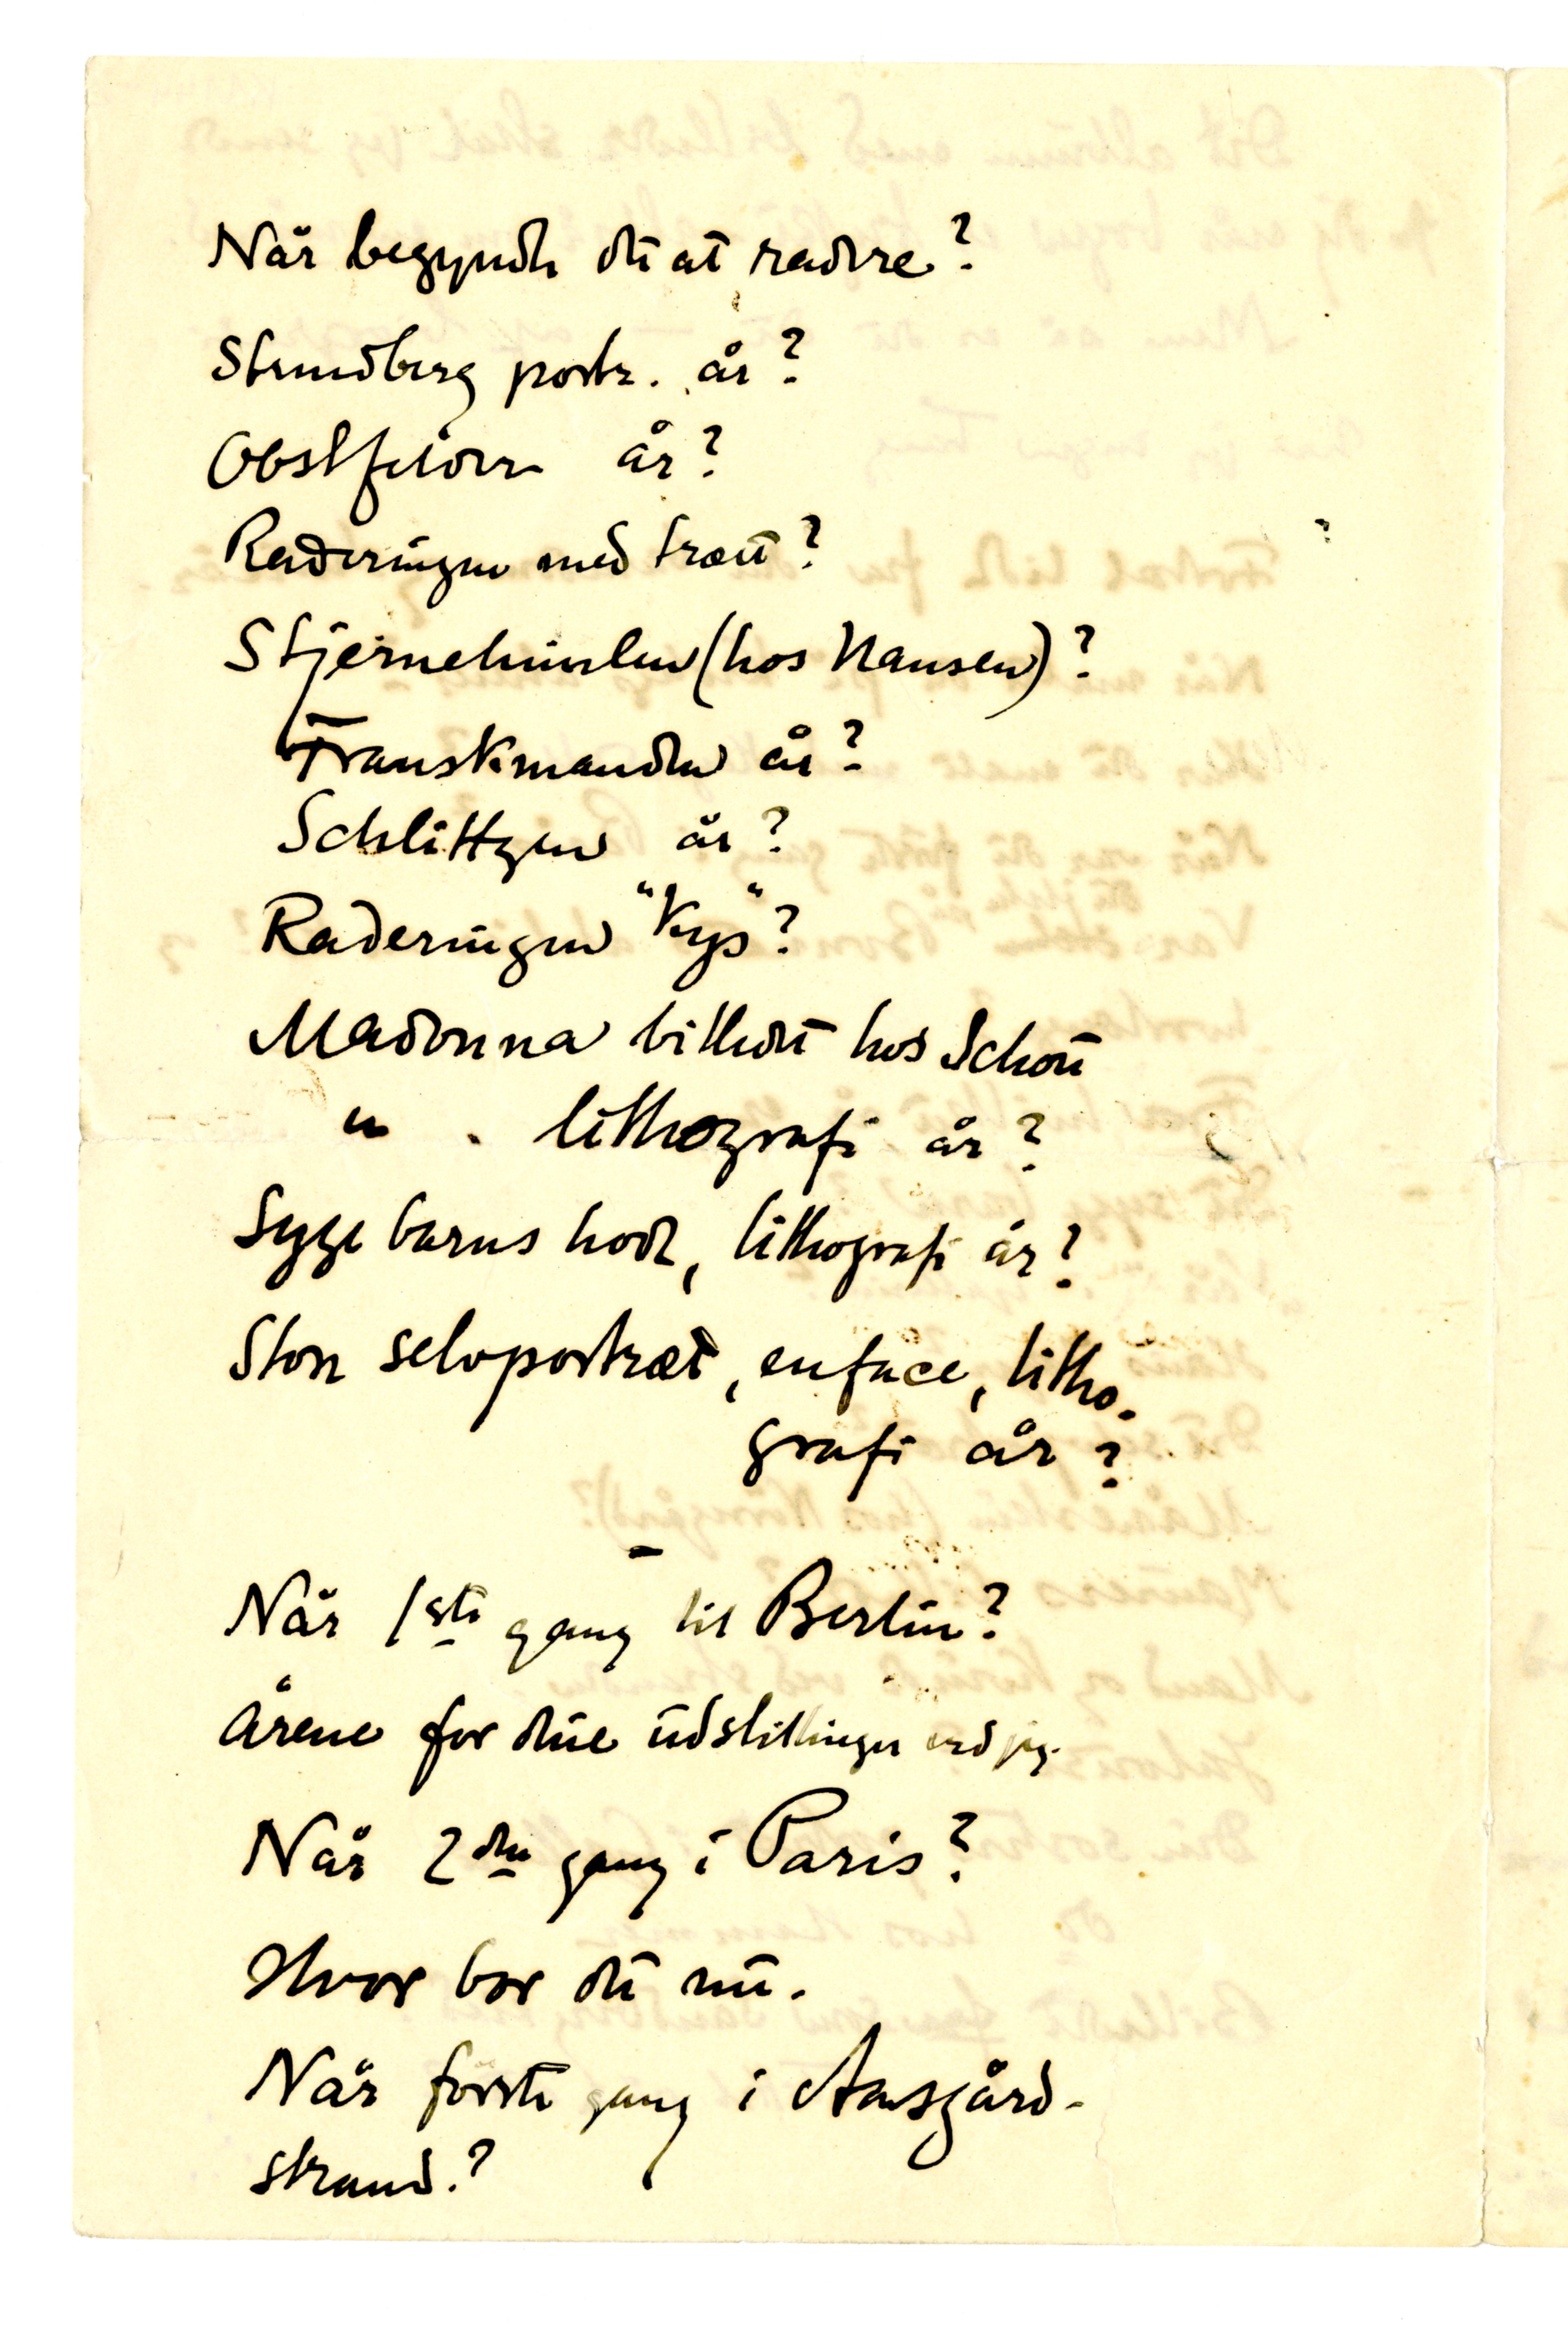 Når begyndte du at radere?
Strindberg portr. år?
Obstfelder år?
Raderingen med træet?
Stjernehimlen (hos Nansen)?
Franskmanden år?
Schlittgen år?
Raderingen "Kys"?
Madonna billedet hos Schou
" . lithografi år?
Syge barns hode, lithografi år?
Store selvportræt, enface, litho-
grafi år?
Når 1ste gang til Berlin?
Årene for dine udstillinger ved jeg.
Når 2den gang i Paris?
Hvor bor du nu.
Når første gang i Aasgård-
strand.?